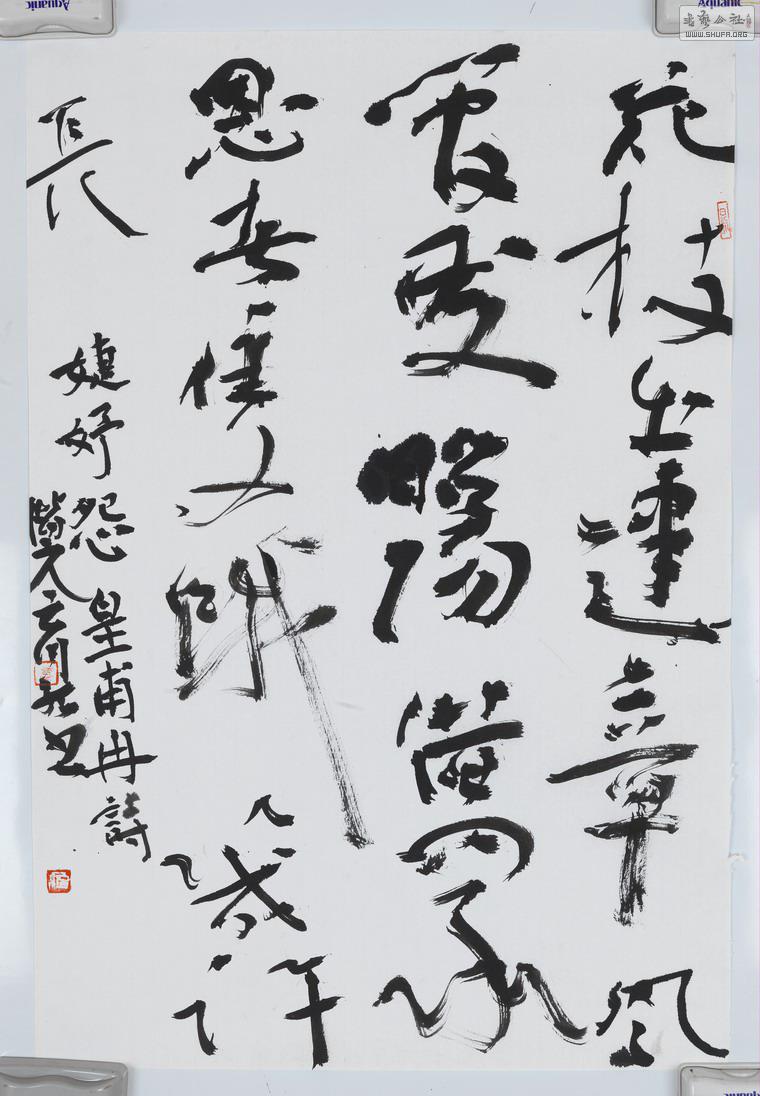 花枝出建章凤
管發昭陽借問承
恩者雙蛾幾許
長
婕妤怨 皇甫冉詩
書藝公社
WWW.SHUFA.ORG
Aquanic
Aquanic